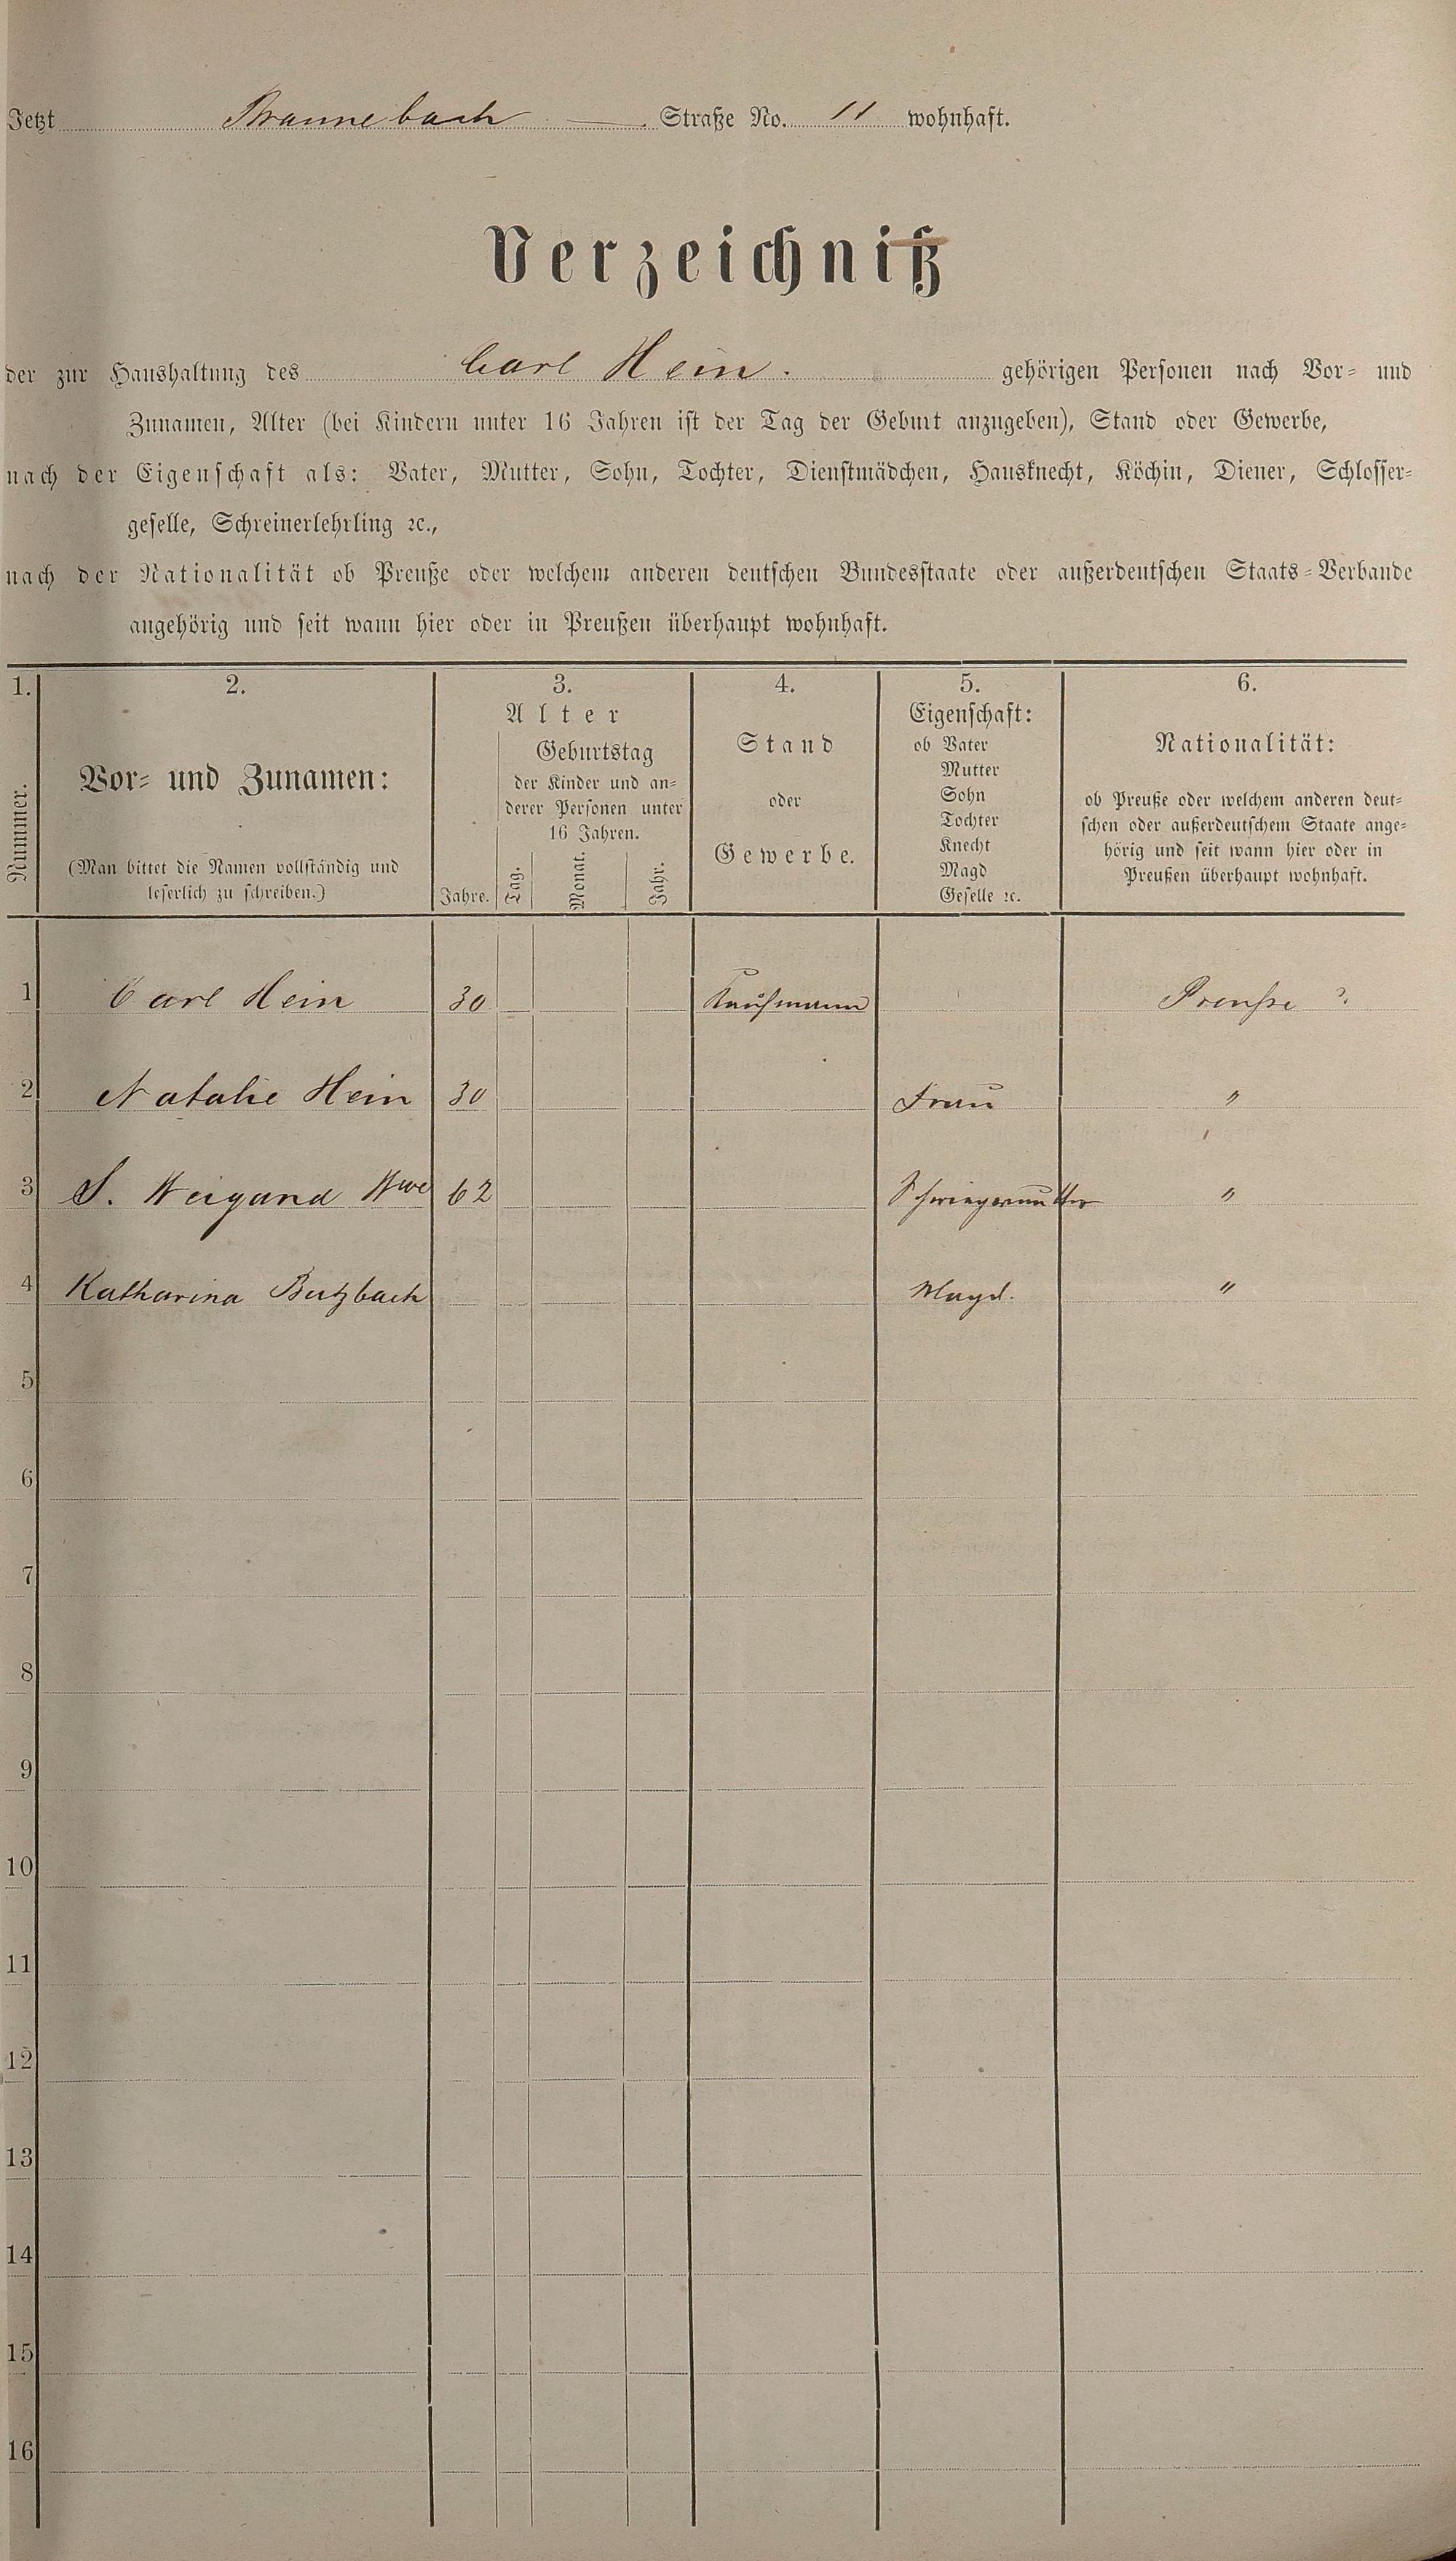 Jetzt Braunebach Straße No. 11 wohnhaft.
Verzeichniß
der zur Haushaltung des Carl Hein. gehörigen Personen nach Vor- und
Zunamen, Alter (bei Kindern unter 16 Jahren ist der Tag der Geburt anzugeben), Stand oder Gewerbe,
nach der Eigenschaft als: Vater, Mutter, Sohn, Tochter, Dienstmädchen, Hausknecht, Köchin, Diener, Schlosser-
geselle, Schreinerlehrling ꝛc.,
nach der Nationalität ob Preuße oder welchem anderen deutschen Bundesstaate oder außerdeutschen Staats-Verbande
angehörig und seit wann hier oder in Preußen überhaupt wohnhaft.
1. 2. 3. 4. 5. 6.
Nummer.
Vor- und Zunamen:
(Man bittet die Namen vollständig und
leserlich zu schreiben.)
Alter
Jahre.
Geburtstag
der Kinder und an-
derer Personen unter
16 Jahren.
Tag. Monat. Jahr.
Stand
oder
Gewerbe.
Eigenschaft:
ob Vater
Mutter
Sohn
Tochter
Knecht
Magd
Geselle ꝛc.
Nationalität:
ob Preuße oder welchem anderen deut-
schen oder außerdeutschem Staate ange-
hörig und seit wann hier oder in
Preußen überhaupt wohnhaft.
1 Carl Hein 30 Kaufmann Preuße ?
2 Natalie Hein 30 Frau "
3 S. Weigand Wwe 62 Schwiegermutter "
4 Katharina Butzbach Magd. "
5
6
7
8
9
10
11
12
13
14
15
16